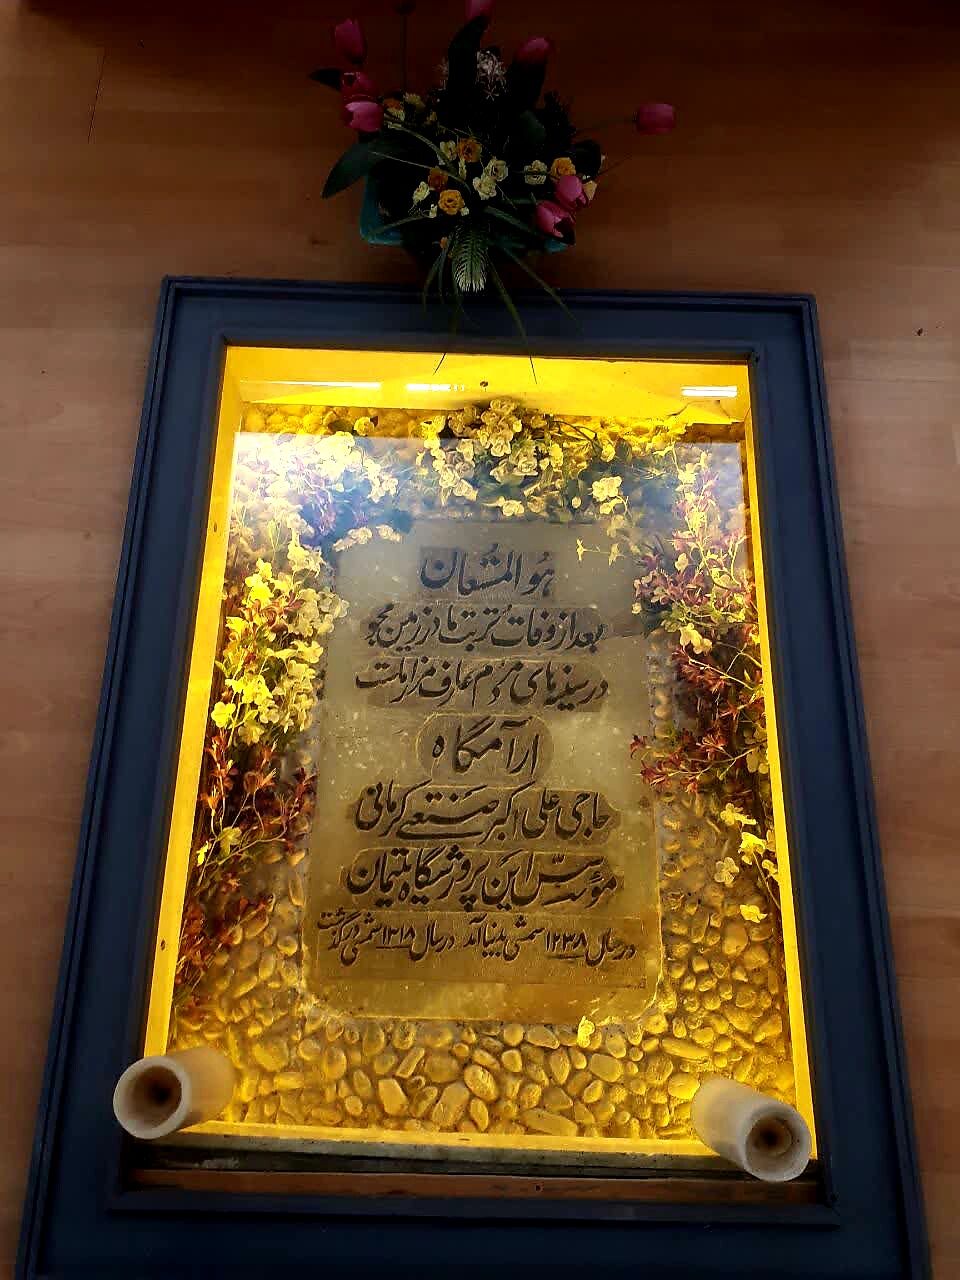 هُوَ المُستَعان
بعد از وفات تربت ما در زمین مجو
در سینه‌های مردم عارف مزار ماست
آرامگاه
حاجی علی اکبر صنعتی کرمانی
مؤسّس این پرورشگاه یتیمان
در سال ۱۲۳۸ شمسی بدنیا آمد در سال ۱۳۱۸ شمسی درگذشت